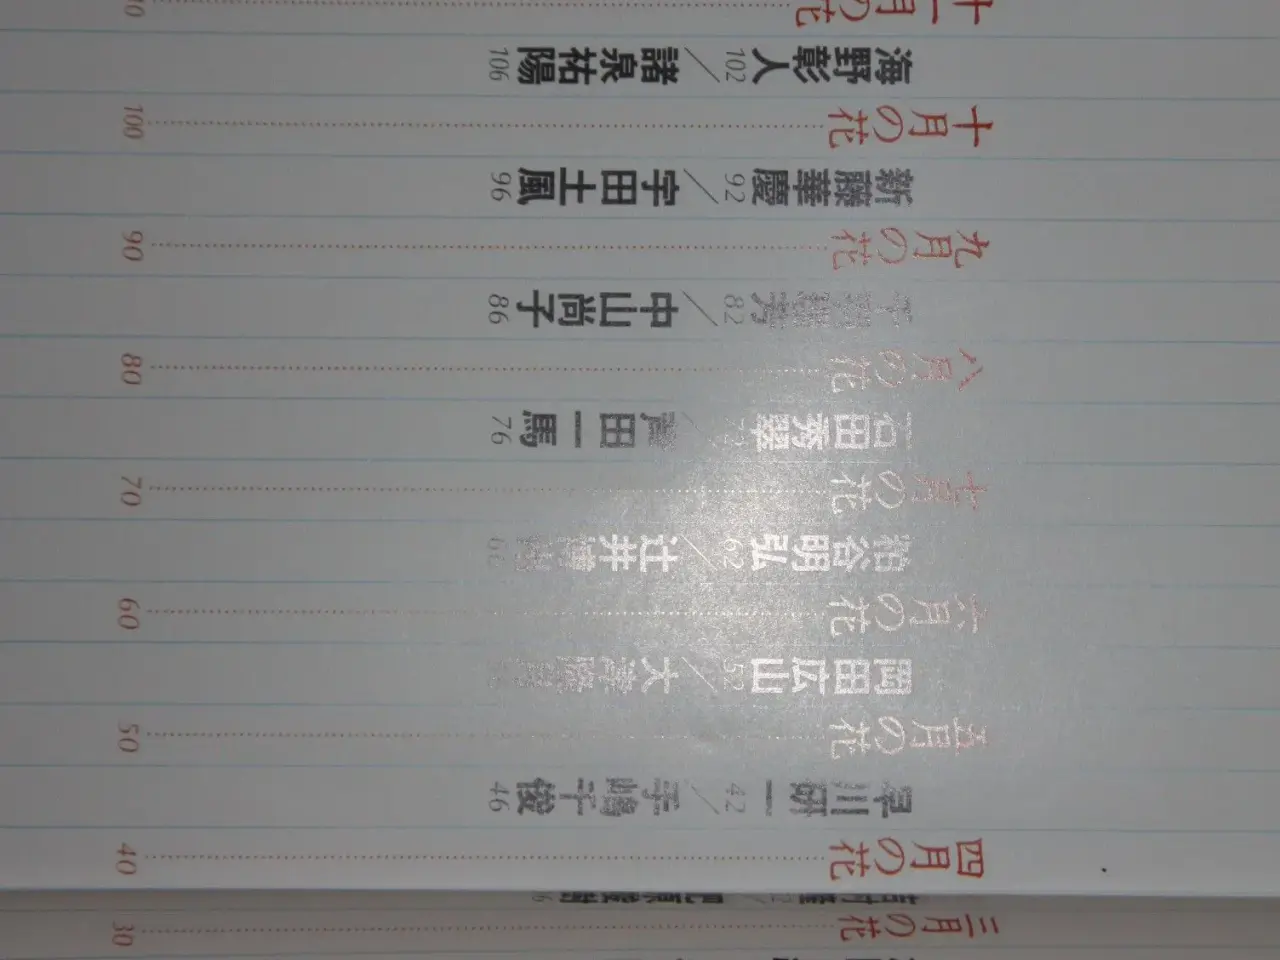 三月の花 30
四月の花 40
早川研一 42／手嶋千俊 46
五月の花 50
岡田広山 52／大津
六月の花 60
粕谷明弘 62／辻井博州 66
七月の花 70
石田秀翠 ／芦田一馬 76
八月の花 80
千羽理芳 82／中山尚子 86
九月の花 90
新藤華慶 92／宇田土風 96
十月の花 100
海野彰人 102／諸泉祐陽 106
十一月の花